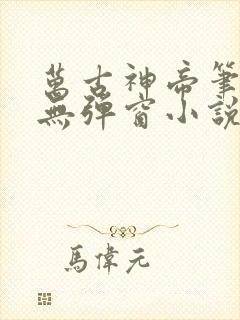 萬古神帝筆
無彈窗小說
馬偉元